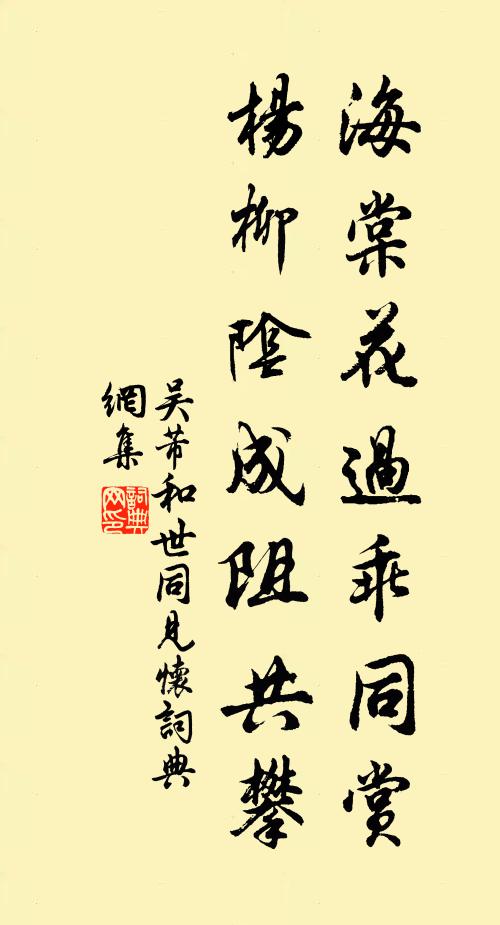 海棠花過乖同賞
楊柳陰成阻共攀
吴芾和世同見懷詞典
網集
詞典
网印